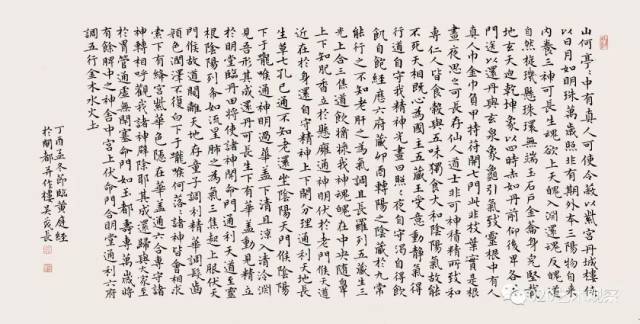 山何亭亭中有真人可使令蔽以紫宫丹城樓俠
以日月如明珠萬歲照非有期外本三陽物自来
内養三神可長生魂欲上天魄入淵還魂反魄道
自然旋璣懸珠環無端玉石戶金籥身完堅載
地玄天迴乾坤象以四時赤如丹前仰後卑各異
門送以還丹與玄泉象龜引氣致靈根中有
真人巾金巾負甲持符開七門此非枝葉實是根
晝夜思之可長存仙人道士非可神積精所致和
專仁人皆食穀與五味獨食大和陰陽氣故能
不死天相既心為國主五藏王受意動静氣得
行道自守我精神光晝日照照夜自守渴自得飲
飢自飽經歷六府藏卯酉轉陽之陰藏於九常
能行之不知老肝之為氣調且長羅列五藏生三
光上合三焦道飲漿我神魂魄在中央隨鼻
上下知肥香立於懸癰通神明伏於老門候天道
近在於身還自守精神上下開分理通利天地長
生草七孔已通不知老還坐陰陽天門候陰陽
下于嚨喉通神明過華蓋下清且涼入清泠淵
見吾形其成還丹可長生下有華蓋動見精立
於明堂臨丹田將使諸神開命門通利天道至靈
根陰陽列布如流星肺之為氣三焦起上服伏天
門候故道闚離天地存童子調利精華調髮齒
顏色潤澤不復白下于嚨喉何落落諸神皆會相求
索下有絳宮紫華色隱在華蓋通六合專守諸
神轉相呼觀我諸神辟除耶其成還歸與大家至
於胃管通虚無閉塞命門如玉都壽專萬歲將
有餘脾中之神舍中宮上伏命門合明堂通利六府
調五行金木水火土
丁酉孟冬節臨黄庭經